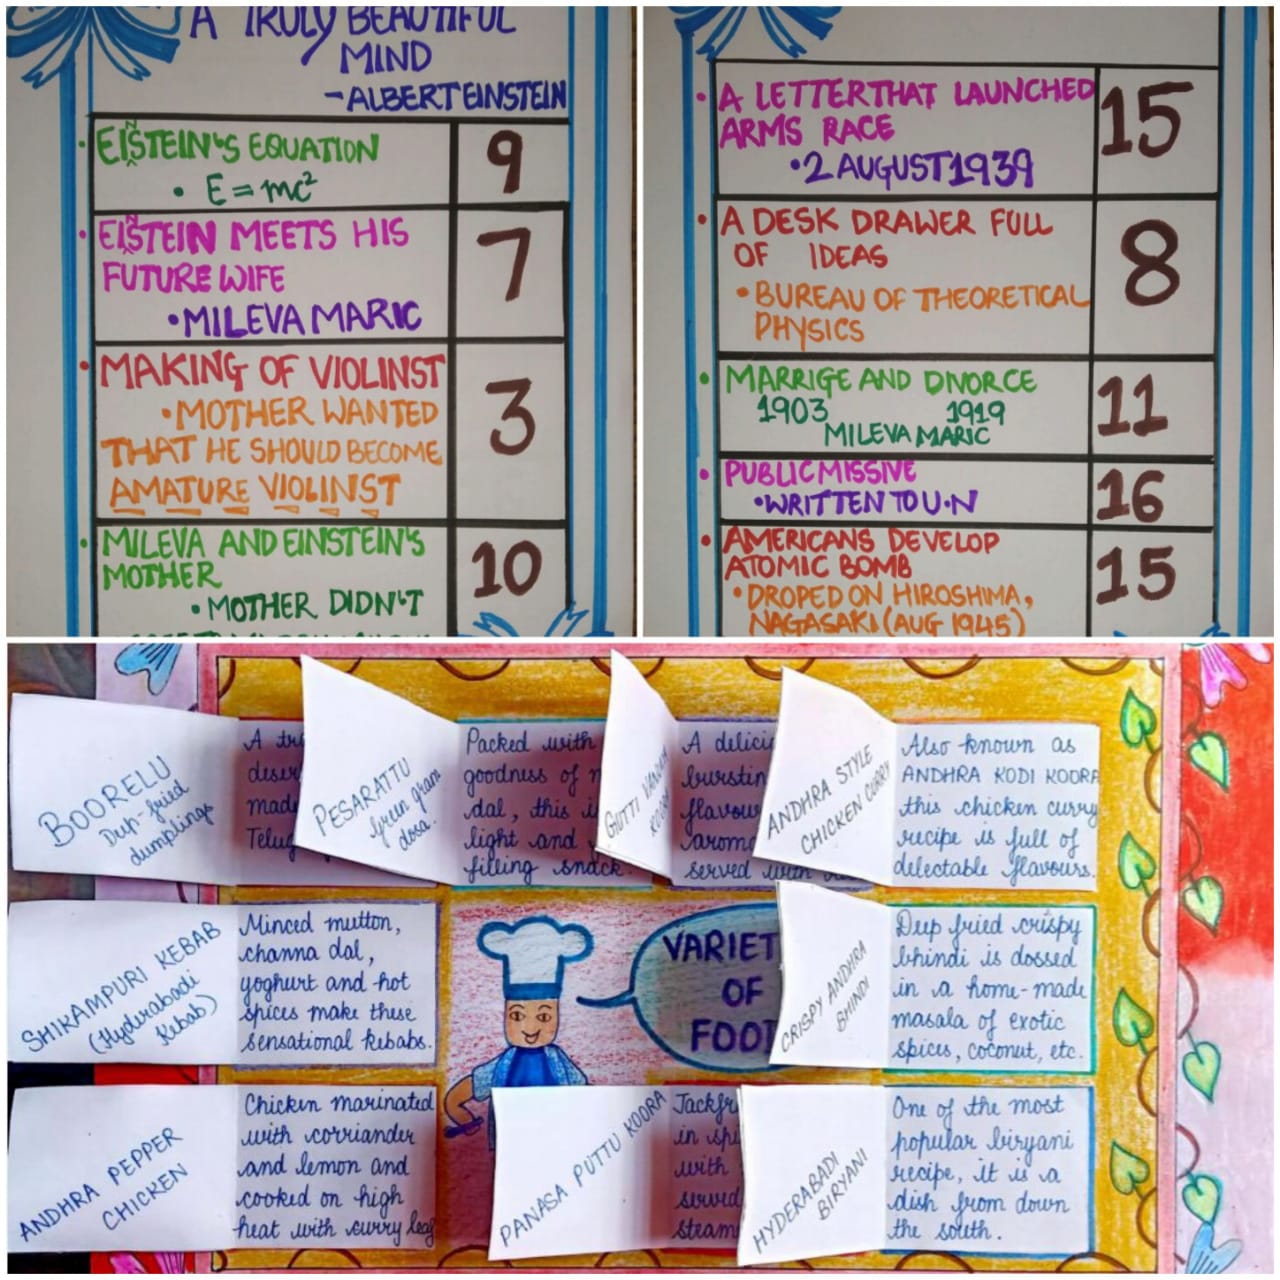 A TRULY BEAUTIFUL
MIND
-ALBERT EINSTEIN
• EIŠTEIN'S EQUATION
N
9
• E=mc²
• EIŠTEIN MEETS HIS
N
FUTURE WIFE
• MILEVA MARIC
7
• MAKING OF VIOLINST
• MOTHER WANTED
THAT HE SHOULD BECOME
AMATURE VIOLINST
3
• MILEVA AND EINSTEIN'S
MOTHER
• MOTHER DIDN'T
10
• A LETTER THAT LAUNCHED
ARMS RACE
• 2 AUGUST 1939
15
• A DESK DRAWER FULL
OF IDEAS
• BUREAU OF THEORETICAL
PHYSICS
8
• MARRIGE AND DIVORCE
1903 1919
MILEVA MARIC
11
• PUBLIC MISSIVE
• WRITTEN TO U.N
16
• AMERICANS DEVELOP
ATOMIC BOMB
• DROPED ON HIROSHIMA,
NAGASAKI (AUG 1945)
15
BOORELU
Deep-fried
dumplings
A
made
PESARATTU
Green gram
dosa.
Packed with
goodness of
dal, this
light and
filling snack.
GUTTI
A
served with
ANDHRA STYLE
CHICKEN CURRY
Also known as
ANDHRA KODI KOORA
this chicken curry
recipe is full of
delectable flavours.
SHIKAMPURI KEBAB
(Hyderabadi
Kebab)
Minced mutton,
channa dal,
yoghurt and hot
spices make these
sensational kebabs.
VARIET
OF
FOOD
CRISPY ANDHRA
BHINDI
Deep fried crispy
bhindi is dossed
in a home-made
masala of exotic
spices, coconut, etc.
ANDHRA PEPPER
CHICKEN
Chicken marinated
with corriander
and lemon and
cooked on high
heat with curry leaf
PANASA PUTTU KOORA
Jackfr
in
with
served
steam
HYDERABADI
BIRYANI
One of the most
popular biryani
recipe, it is a
dish from down
the south.